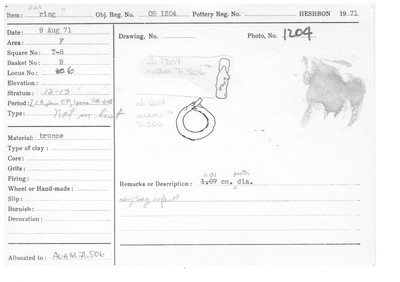 Item: ear ring ? Obj. Reg. No. OB 1204 Pottery Reg. No. HESHBON 1971
Date: 9 Aug 71
Area: F
Square No: T-6
Basket No: 9
Locus No: 6
Elevation:
Stratum: 12-13
Period:
Type: Not in
Drawing, No.
Photo, No. 1204
ob 1204
AUAM 71.506
ob 1204
AUAM
71.506
Material: bronze
Type of clay:
Core:
Grits:
Firing:
Wheel or Hand-made:
Slip:
Burnish:
Decoration:
Remarks or Description: 1.07 cm. outer dia.
Allocated to: AUAM 71.506